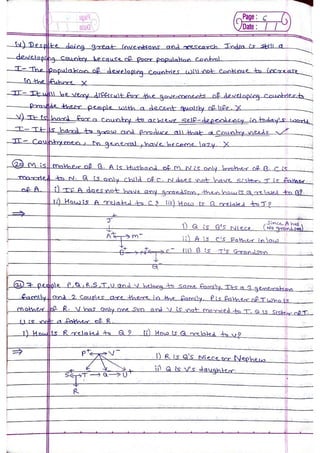 Page: 5
Date: / /
iv) Despite doing great inventions and research India is still a
developing country because of poor population control.
I - The population of developing countries will not continue to increase
in the future X
II - It will be very difficult for the governments of developing countries to
provide their people with a decent quality of life. X
v) It is hard for a country to achieve self-dependency in today's world.
I - It is hard to grow and produce all that a country needs ✓
II - Countrymen, in general, have become lazy. X
M is mother of B. A is Husband of M. N is only brother of B. C is
married to N. G is only child of C. N does not have sister. J is father
of A. I) If A does not have any grandson, then how is G related to B?
II) How is A related to C? III) How is B related to J?
⇒ J+
I) G is B's Niece (Since A has no grandson)
A+ M-
II) A is C's Father in law
B+ N+ C-
III) B is J's Grandson
G-
7 people P,Q,R,S,T,U and V belong to same family. Its a 3 generation
family and 2 couples are there in the family. P is father of T who is
mother of R. V has only one son and V is not married to T. Q is sister of T.
U is not a father of R.
I) How is R related to Q? II) How is Q related to V?
⇒ P+ V-
I) R is Q's Niece or Nephew
S+ T- Q- U+
II) Q is V's daughter
R